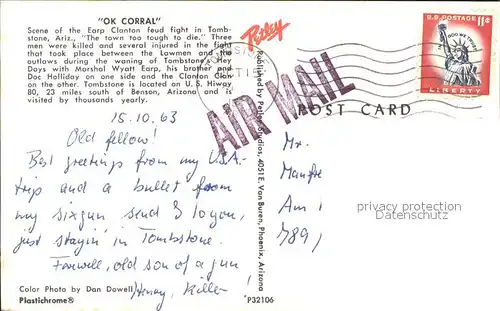 "OK CORRAL"
Scene of the Earp Clanton feud fight in Tomb-
stone, Ariz., "The town too tough to die." Three
men were killed and several injured in the fight
that took place between the Lawmen and the
outlaws during the waning of Tombstone's Hey
Days with Marshal Wyatt Earp, his brother and
Doc Holliday on one side and the Clanton Clan
on the other. Tombstone is located on U.S. Hiway
80, 23 miles south of Benson, Arizona and is
visited by thousands yearly.
15.10.63
Old fellow!
Best greetings from my USA-
trip and a bullet from
my sixgun send I to you,
just stayin' in Tombstone.
Farwell, old son of a gun
Henry, Killer!
Color Photo by Dan Dowell
Plastichrome®
P32106
Petley
Published by Petley Studios, 4051 E. Van Buren, Phoenix, Arizona
AIR MAIL
POST CARD
U.S. POSTAGE 11¢
IN GOD WE TRUST
LIBERTY
Mr.
Manfre
Am 1
789
privacy protection
Datenschutz